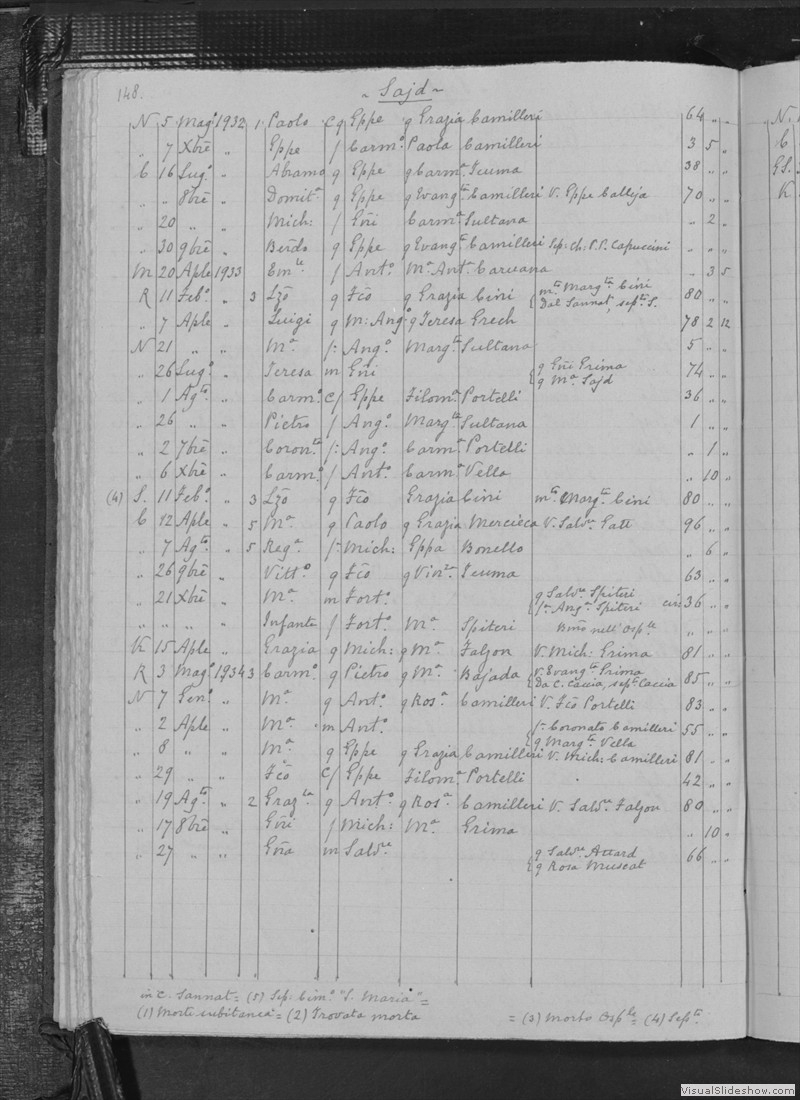 148. ~ Sajd ~
N 5 Mag.º 1932 1 Paolo C q Eppe q Grazia Camilleri 64 " "
" 7 Xbrē " Eppe / Carm.º Paola Camilleri 3 5 "
C 16 Lug.º " Abramo q Eppe q Carm.ª Scuma 38 " "
" " 8brē " Domit.ª q Eppe q Evang.ta Camilleri V. Eppe Calleja 70 " "
" 20 " " Mich: / Eñi Carm.ª Sultana " 2 "
" 30 9brē " Berdo q Eppe q Evang.ta Camilleri Sep: ch: P.P. Capuccini " " "
M 20 Aple 1933 Em.le / Ant.º M.ª Ant.ª Caruana " 3 5
R 11 Feb.º " 3 Lzō q Fcō q Grazia Cini { m.to Marg.ta Cini Dal Sannat, sep.to S. 80 " "
" 7 Aple " Luigi q M: Ang.º q Teresa Grech 78 2 12
N 21 " " M.ª /: Ang.º Marg.ta Sultana 5 " "
" 26 Lug.º " Teresa m Eñi { q Eñi Grima q M.ª Sajd 74 " "
" 1 Ag.to " Carm.º C/ Eppe Filom.ª Portelli 36 " "
" 26 " " Pietro / Ang.º Marg.ta Sultana 1 " "
" 2 7brē " Coron.ta /: Ang.º Carm.ª Portelli " 1 "
" 6 Xbrē " Carm.º / Ant.º Carm.ª Vella " 10 "
(4) S. 11 Feb.º " 3 Lzō q Fcō Grazia Cini m.to Marg.ta Cini 80 " "
C 12 Aple " 5 M.ª q Paolo q Grazia Mercieca V. Salv.re Gatt 96 " "
" 7 Ag.to " 5 Reg.ª /: Mich: Eppa Bonello " 6 "
" 26 9brē " Vitt.º q Fcō q Vin.za Scuma 63 " "
" 21 Xbrē " M.ª m Fort.º { q Salv.re Spiteri /: Ang.ª Spiteri 36 " "
" " " " Infante / Fort.º M.ª Spiteri nell' Osp.le " " "
K 15 Aple " Grazia q Mich: q M.ª Falzon V. Mich: Grima 81 " "
R 3 Mag.º 1934 3 Carm.º q Pietro q M.ª Bajada { V. Evang.ta Grima Da C. Caccia, sep.to Caccia 85 " "
N 7 Gen.º " M.ª q Ant.º q Ros.ª Camilleri V. Fcō Portelli 83 " "
" 2 Aple " M.ª m Ant.º { /: Coronato Camilleri q Marg.ta Vella 55 " "
" 8 " " M.ª q Eppe q Grazia Camilleri V. Mich: Camilleri 81 " "
" 29 " " Fcō C/ Eppe Filom.ª Portelli 42 " "
" 19 Ag.to " 2 Graz.la q Ant.º q Ros.ª Camilleri V. Salv.re Falzon 80 " "
" 17 8brē " Eñi / Mich: M.ª Grima " 10 "
" 27 " " Eña m Salv.re { q Salv.re Attard q Rosa Muscat 66 " "
in C. Sannat = (5) Sep: Cim.º "S. Maria" =
(1) Morti subitanea = (2) Trovata morta = (3) Morto Osp.le = (4) Sep.to
VisualSlideshow.com